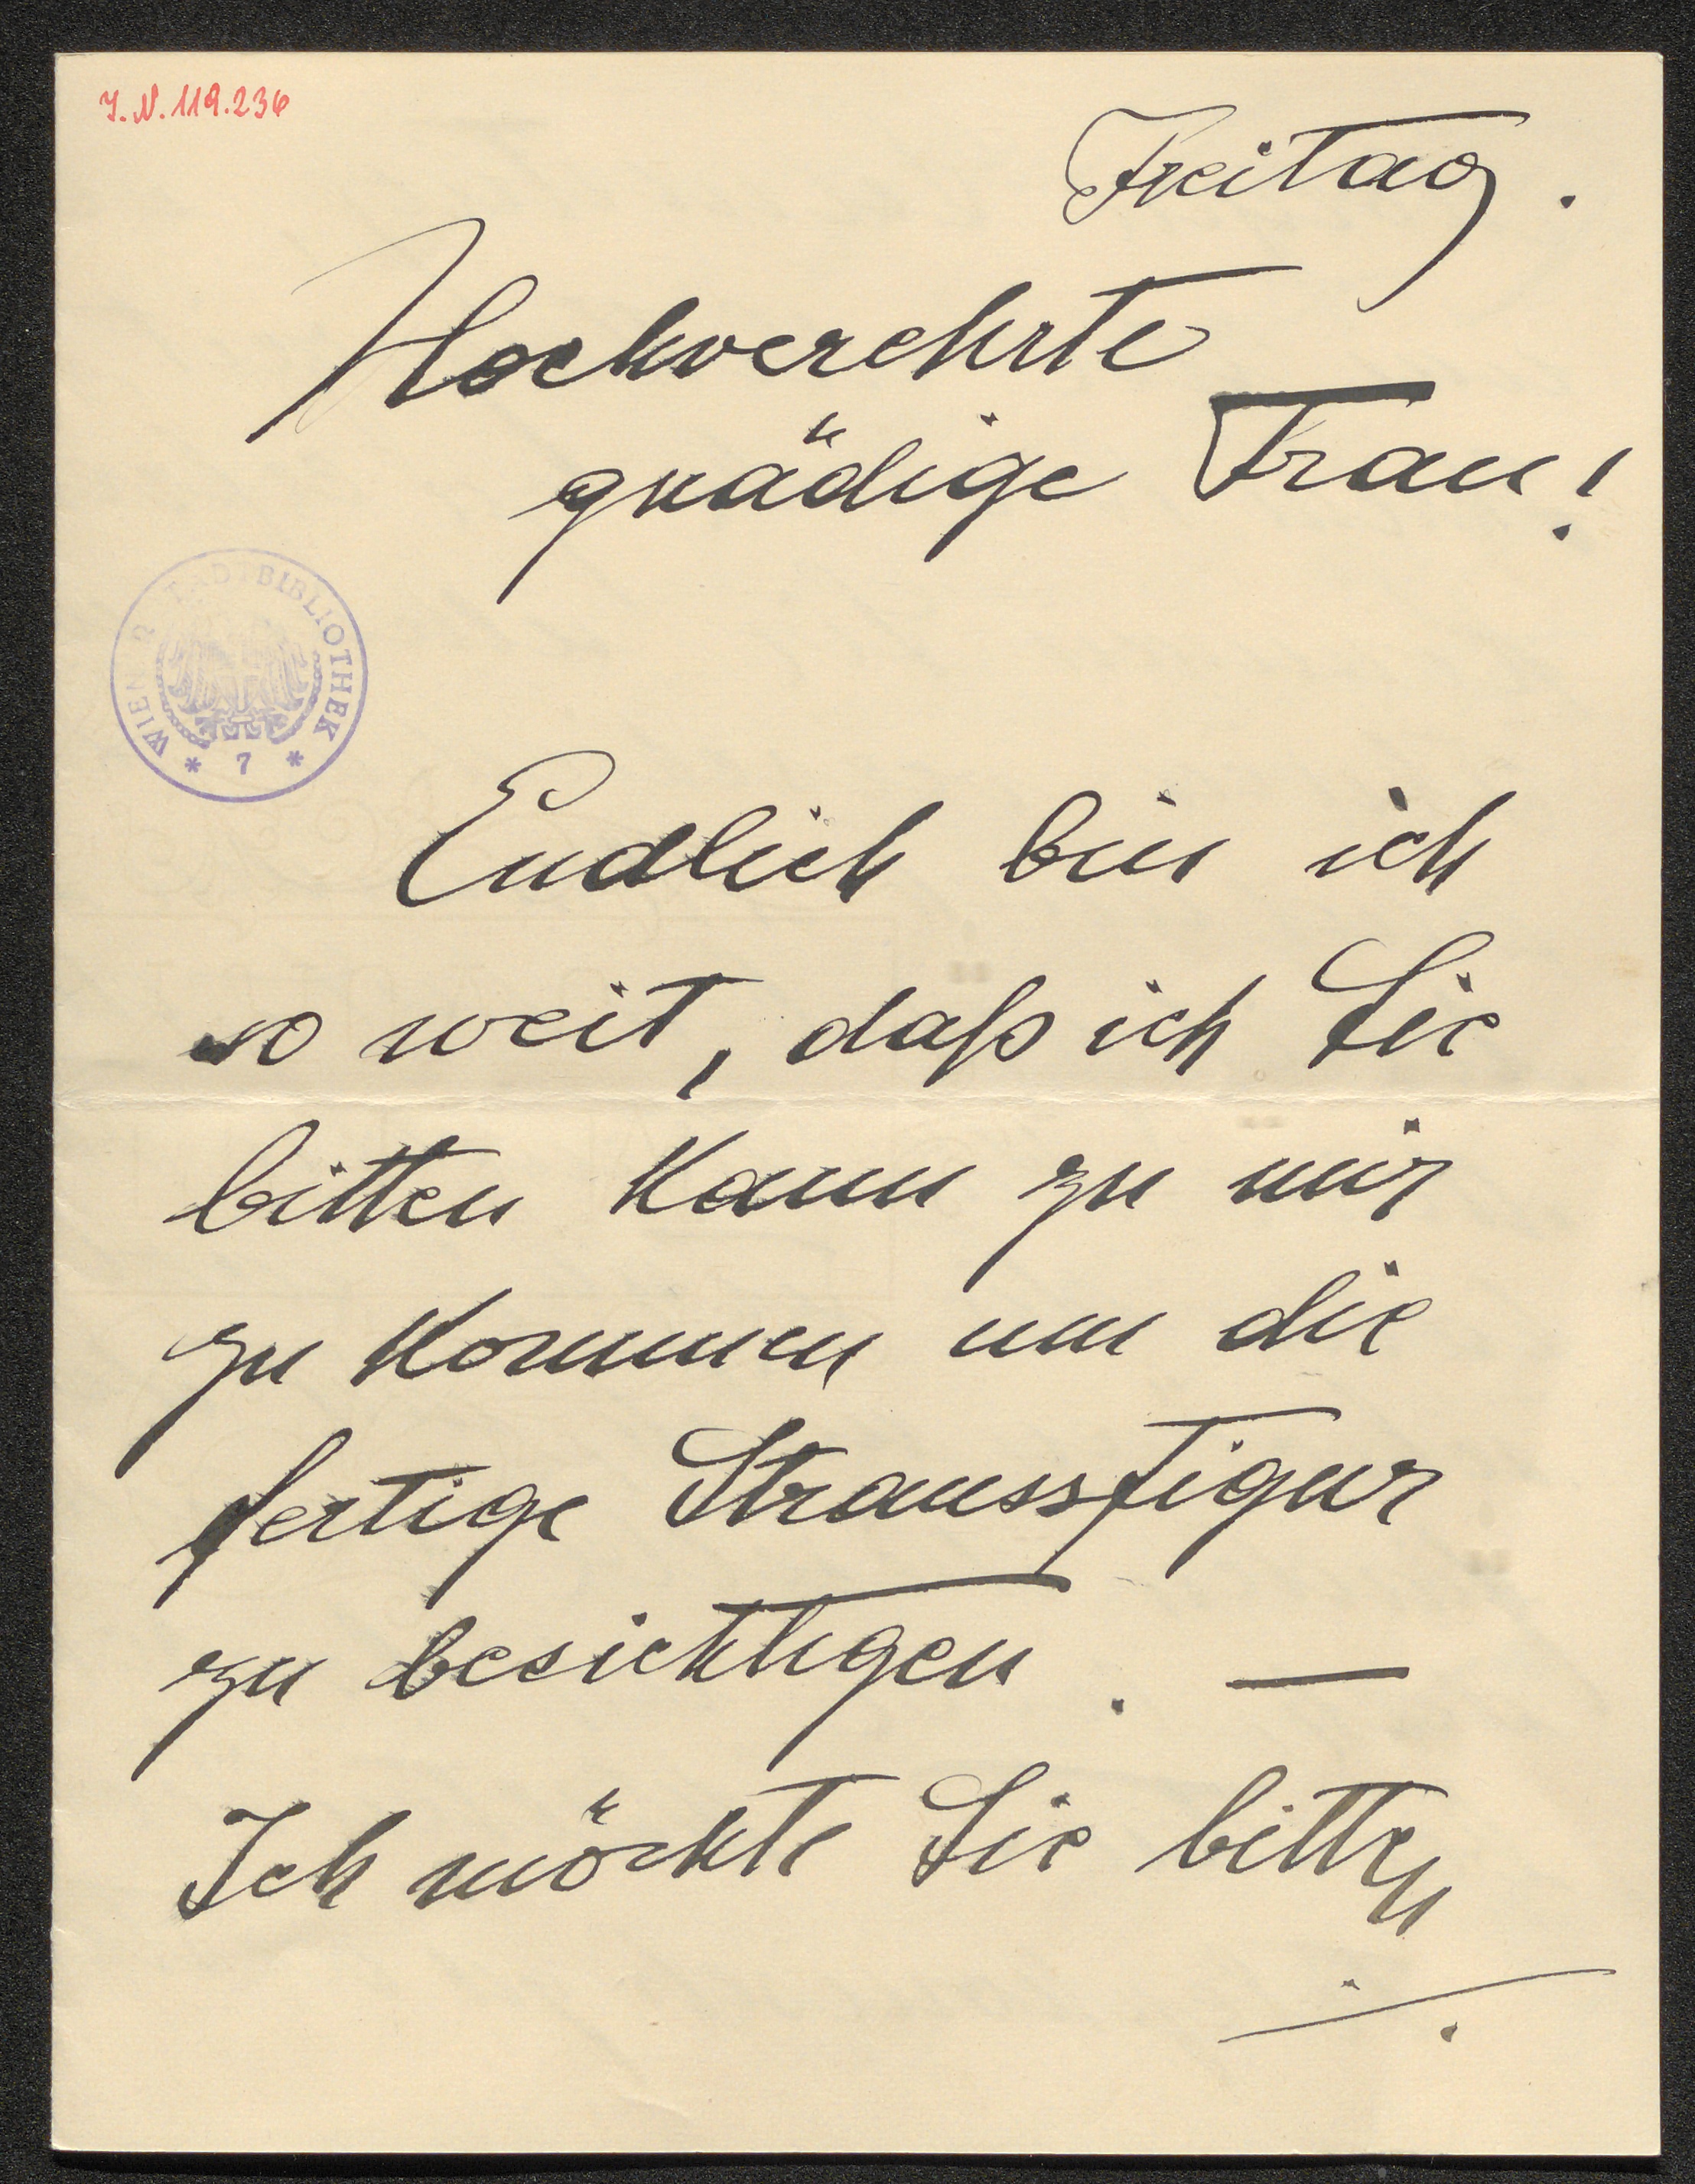 J. N. 119.236
Freitag.
Hochverehrte
gnädige Frau!
WIENER STADTBIBLIOTHEK
* 7 *
Endlich bin ich
so weit, daß ich Sie
bitten kann zu mir
zu kommen um die
fertige Straussfigur
zu besichtigen. —
Ich möchte Sie bitten